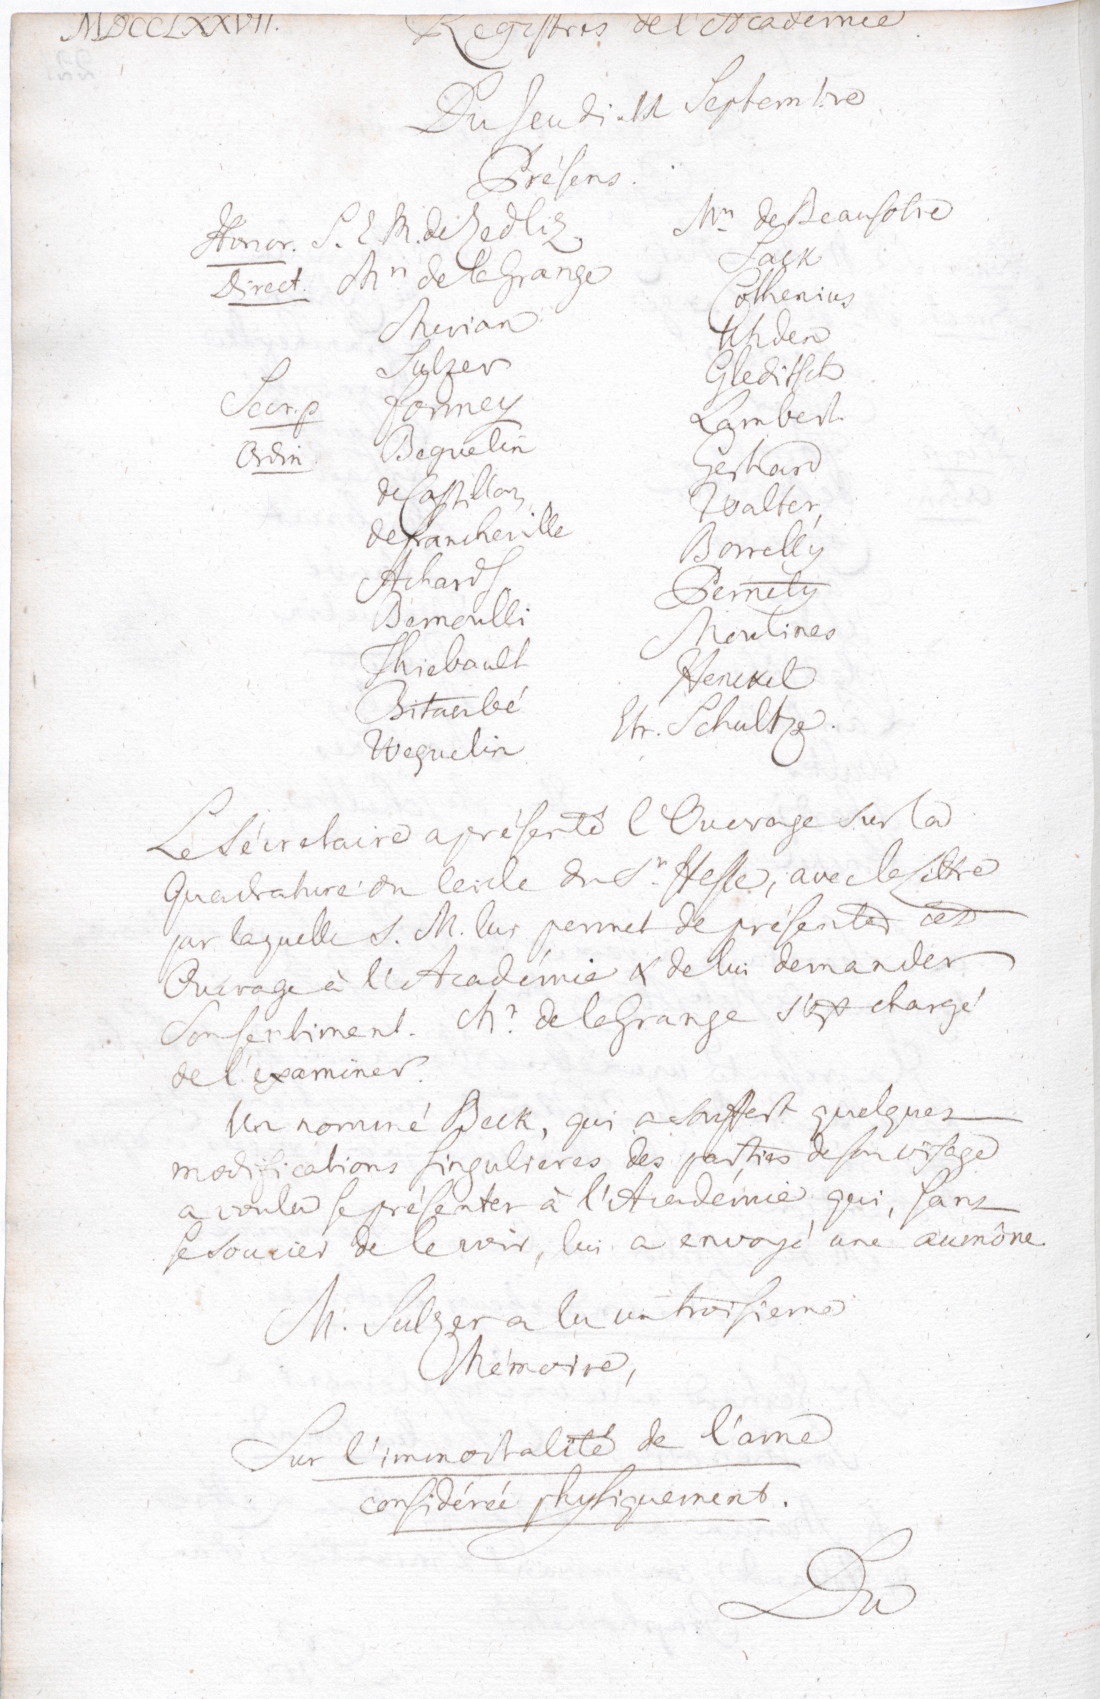 MDCCLXXVII. Registres de l'Academie
Du Jeudi 11 Septembre
Présens.
Honor. S. E. M. de Zedliz
Direct. Mrs de la Grange
Merian
Sulzer
Secr. p. Formey
Ordin Beguelin
de Castillon
de Francheville
Achard
Bernoulli
Thiebault
Bitaubé
Weguelin
Mrs de Beausobre
Sack
Cothenius
Uhden
Gleditsch
Lambert
Gerhard
Walter
Borrelly
Pernety
Moulines
Henckel
Etr. Schultze.
Le Sécretaire a présenté l'Ouvrage sur la
Quadrature du Cercle du Sr. Hesse, avec la Lettre
par laquelle S. M. lui permet de présenter cet
Ouvrage à l'Académie & de lui demander
son sentiment. Mr. de la Grange s'est chargé
de l'examiner.
Un nommé Beck, qui a souffert quelques
modifications singulieres des parties de son visage
a voulu se présenter à l'Académie qui, sans
se soucier de le voir, lui a envoyé une aumône.
M. Sulzer a lu un troisieme
Mémoire,
Sur l'immortalité de l'ame
considérée physiquement.
Du